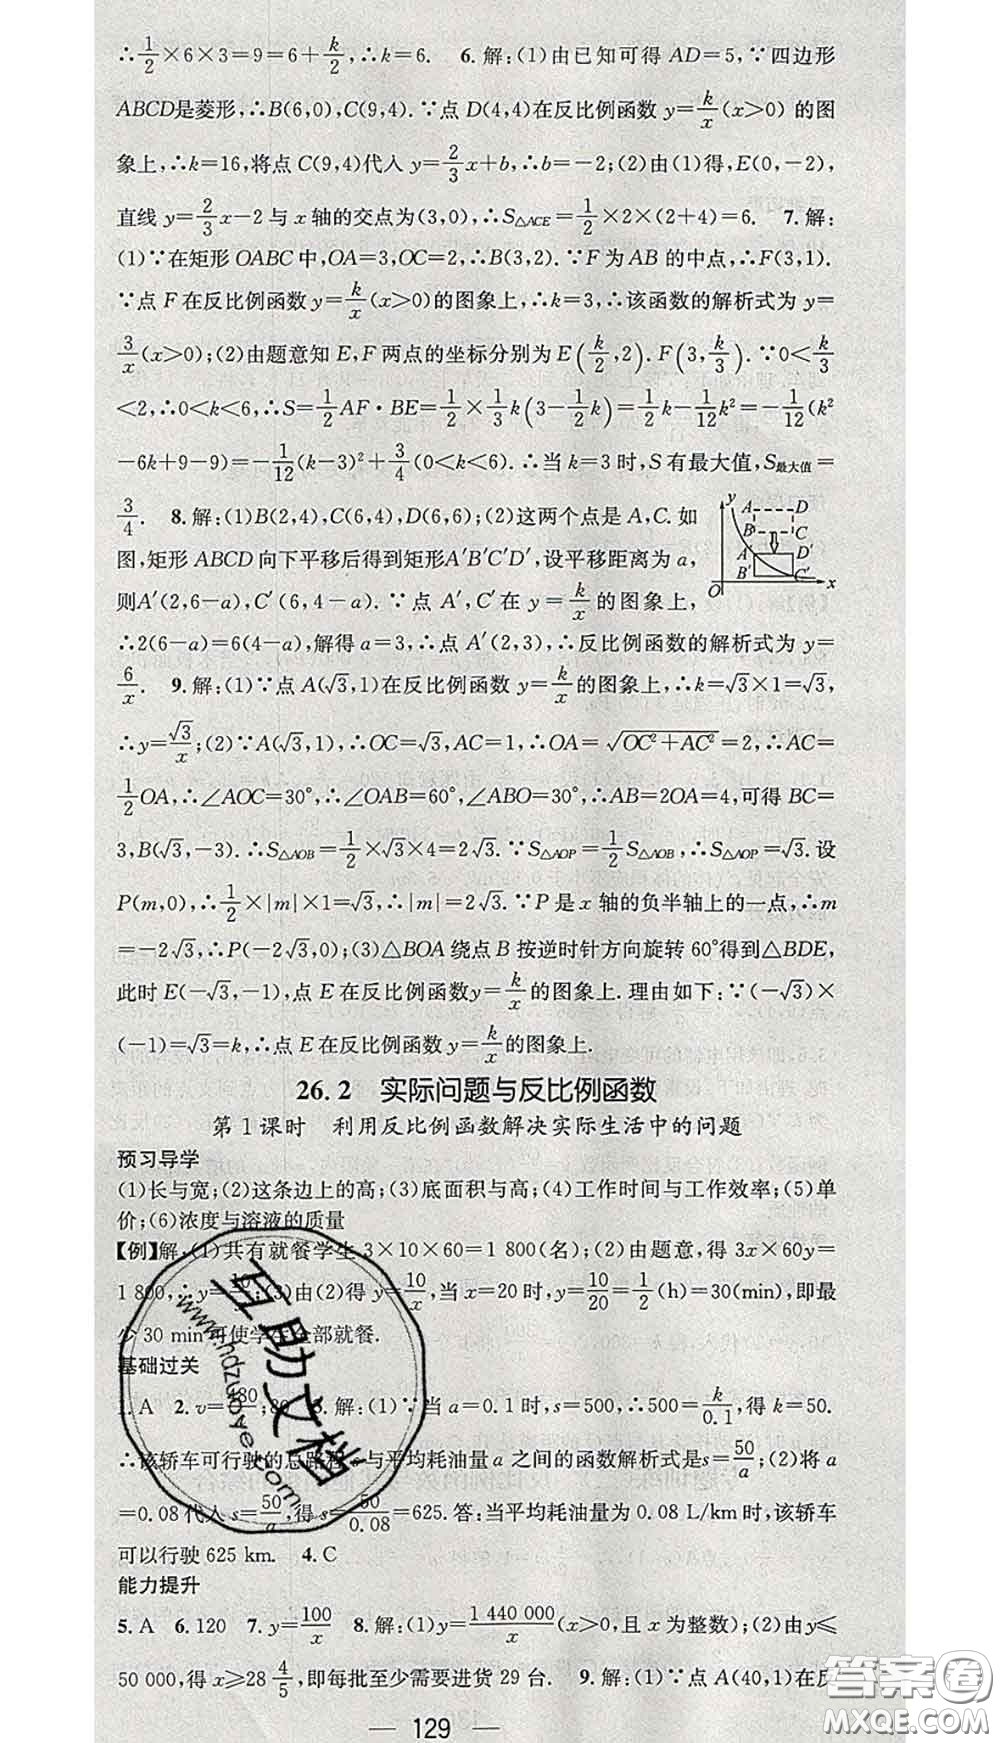 ∴1/2×6×3=9=6+k/2,∴k=6.　6.解:(1)由已知可得 AD=5,∵四边形
ABCD是菱形,∴B(6,0),C(9,4).∵点 D(4,4)在反比例函数 y=k/x(x>0) 的图
象上,∴k=16,将点 C(9,4)代入 y=2/3x+b,∴b=-2;(2)由(1)得,E(0,-2),
直线 y=2/3x-2 与 x 轴的交点为(3,0),∴S△ACE=1/2×2×(2+4)=6.　7.解:
(1)∵在矩形 OABC 中,OA=3,OC=2,∴B(3,2).∵F 为 AB 的中点,∴F(3,1).
∵点 F 在反比例函数 y=k/x(x>0)的图象上,∴k=3,∴该函数的解析式为 y=
3/x(x>0);(2)由题意知 E,F 两点的坐标分别为 E(k/2,2).F(3,k/3).∵0<k/3
<2,∴0<k<6,∴S=1/2AF·BE=1/2×1/3k(3-1/2k)=1/2k-1/12k²=-1/12(k²
-6k+9-9)=-1/12(k-3)²+3/4(0<k<6).∴当 k=3 时,S 有最大值,S最大值=
3/4.　8.解:(1)B(2,4),C(6,4),D(6,6);(2)这两个点是 A,C.如
图,矩形 ABCD 向下平移后得到矩形A′B′C′D′,设平移距离为 a,
则A′(2,6-a),C′(6,4-a).∵点 A′,C′在 y=k/x的图象上,
y A D B C A′ D′ B′ C′ O x
∴2(6-a)=6(4-a),解得 a=3,∴点 A′(2,3),∴反比例函数的解析式为 y=
6/x.　9.解:(1)∵点 A(√3,1)在反比例函数 y=k/x的图象上,∴k=√3×1=√3,
∴y=√3/x;(2)∵A(√3,1),∴OC=√3,AC=1,∴OA=√(OC²+AC²)=2,∴AC=
1/2OA,∴∠AOC=30°,∴∠OAB=60°,∠ABO=30°,∴AB=2OA=4,可得 BC=
3,B(√3,-3).∴S△AOB=1/2×√3×4=2√3.∵S△AOP=1/2S△AOB,∴S△AOP=√3.设
P(m,0),∴1/2×|m|×1=√3,∴|m|=2√3.∵P 是 x 轴的负半轴上的一点,∴m
=-2√3,∴P(-2√3,0);(3)△BOA 绕点 B 按逆时针方向旋转 60°得到△BDE,
此时 E(-√3,-1),点 E 在反比例函数y=k/x的图象上.理由如下:∵(-√3)×
(-1)=√3=k,∴点 E 在反比例函数 y=k/x的图象上.
26.2　实际问题与反比例函数
第 1 课时　利用反比例函数解决实际生活中的问题
预习导学
(1)长与宽;(2)这条边上的高;(3)底面积与高;(4)工作时间与工作效率;(5)单
价;(6)浓度与溶液的质量
【例】解:(1)共有就餐学生 3×10×60=1 800(名);(2)由题意,得 3x×60y=
1 800,∴y=10/x;(3)由(2)得 y=10/x,当 x=20 时,y=10/20=1/2(h)=30(min),即最
少 30 min可使学生全部就餐.
基础过关
1.A　2.v=480/;80　3.解:(1)∵当 a=0.1 时,s=500,∴500=k/0.1,得 k=50.
∴该轿车可行驶的总路程 s 与平均耗油量 a 之间的函数解析式是s=50/a;(2)将 a
=0.08 代入 s=50/a,得 s=50/0.08=625.答:当平均耗油量为 0.08 L/km 时,该轿车
可以行驶 625 km.　4.C
能力提升
5.A　6.120　7.y=100/x　8.解:(1)y=1 440 000/x(x>0,且 x 为整数);(2)由y≤
50 000,得 x≥28 4/5,即每批至少需要进货 29 台.　9.解:(1)∵点 A(40,1)在反
— 129 —
互助文档
www.hdzuoye.com
答案圈
MXQE.COM